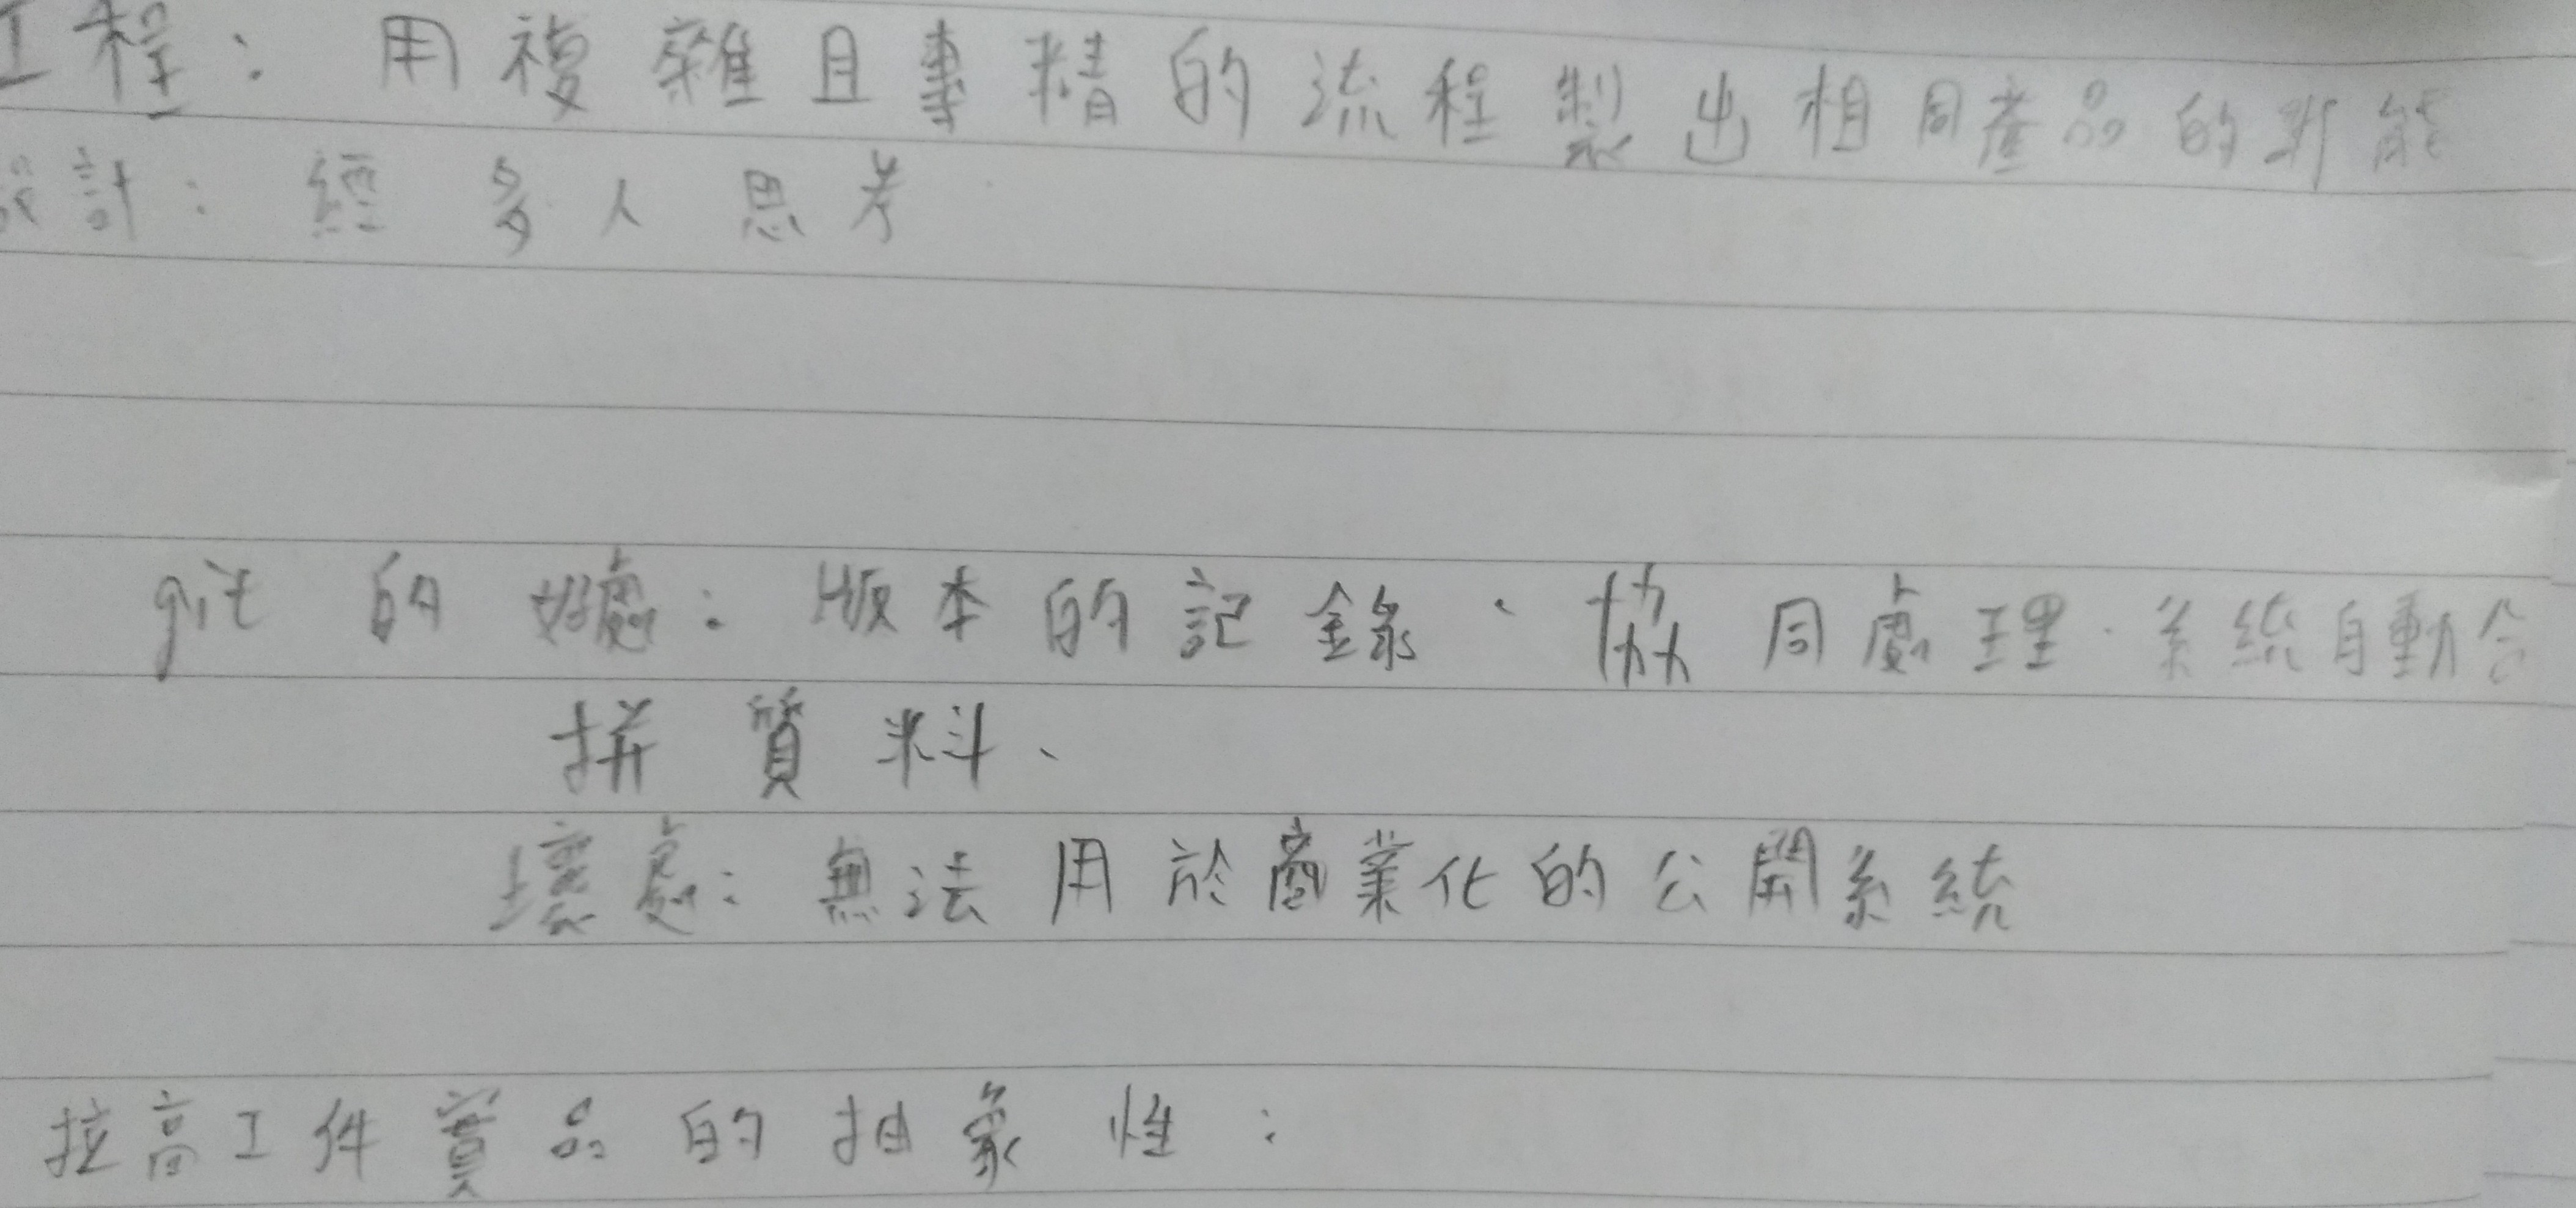 工程：用複雜且專精的流程製出相同產品的功能
設計：經多人思考
git 的好處：版本的記錄、協同處理、系統自動合
拼資料、
壞處：無法用於商業化的公開系統
拉高工件實品的抽象性：